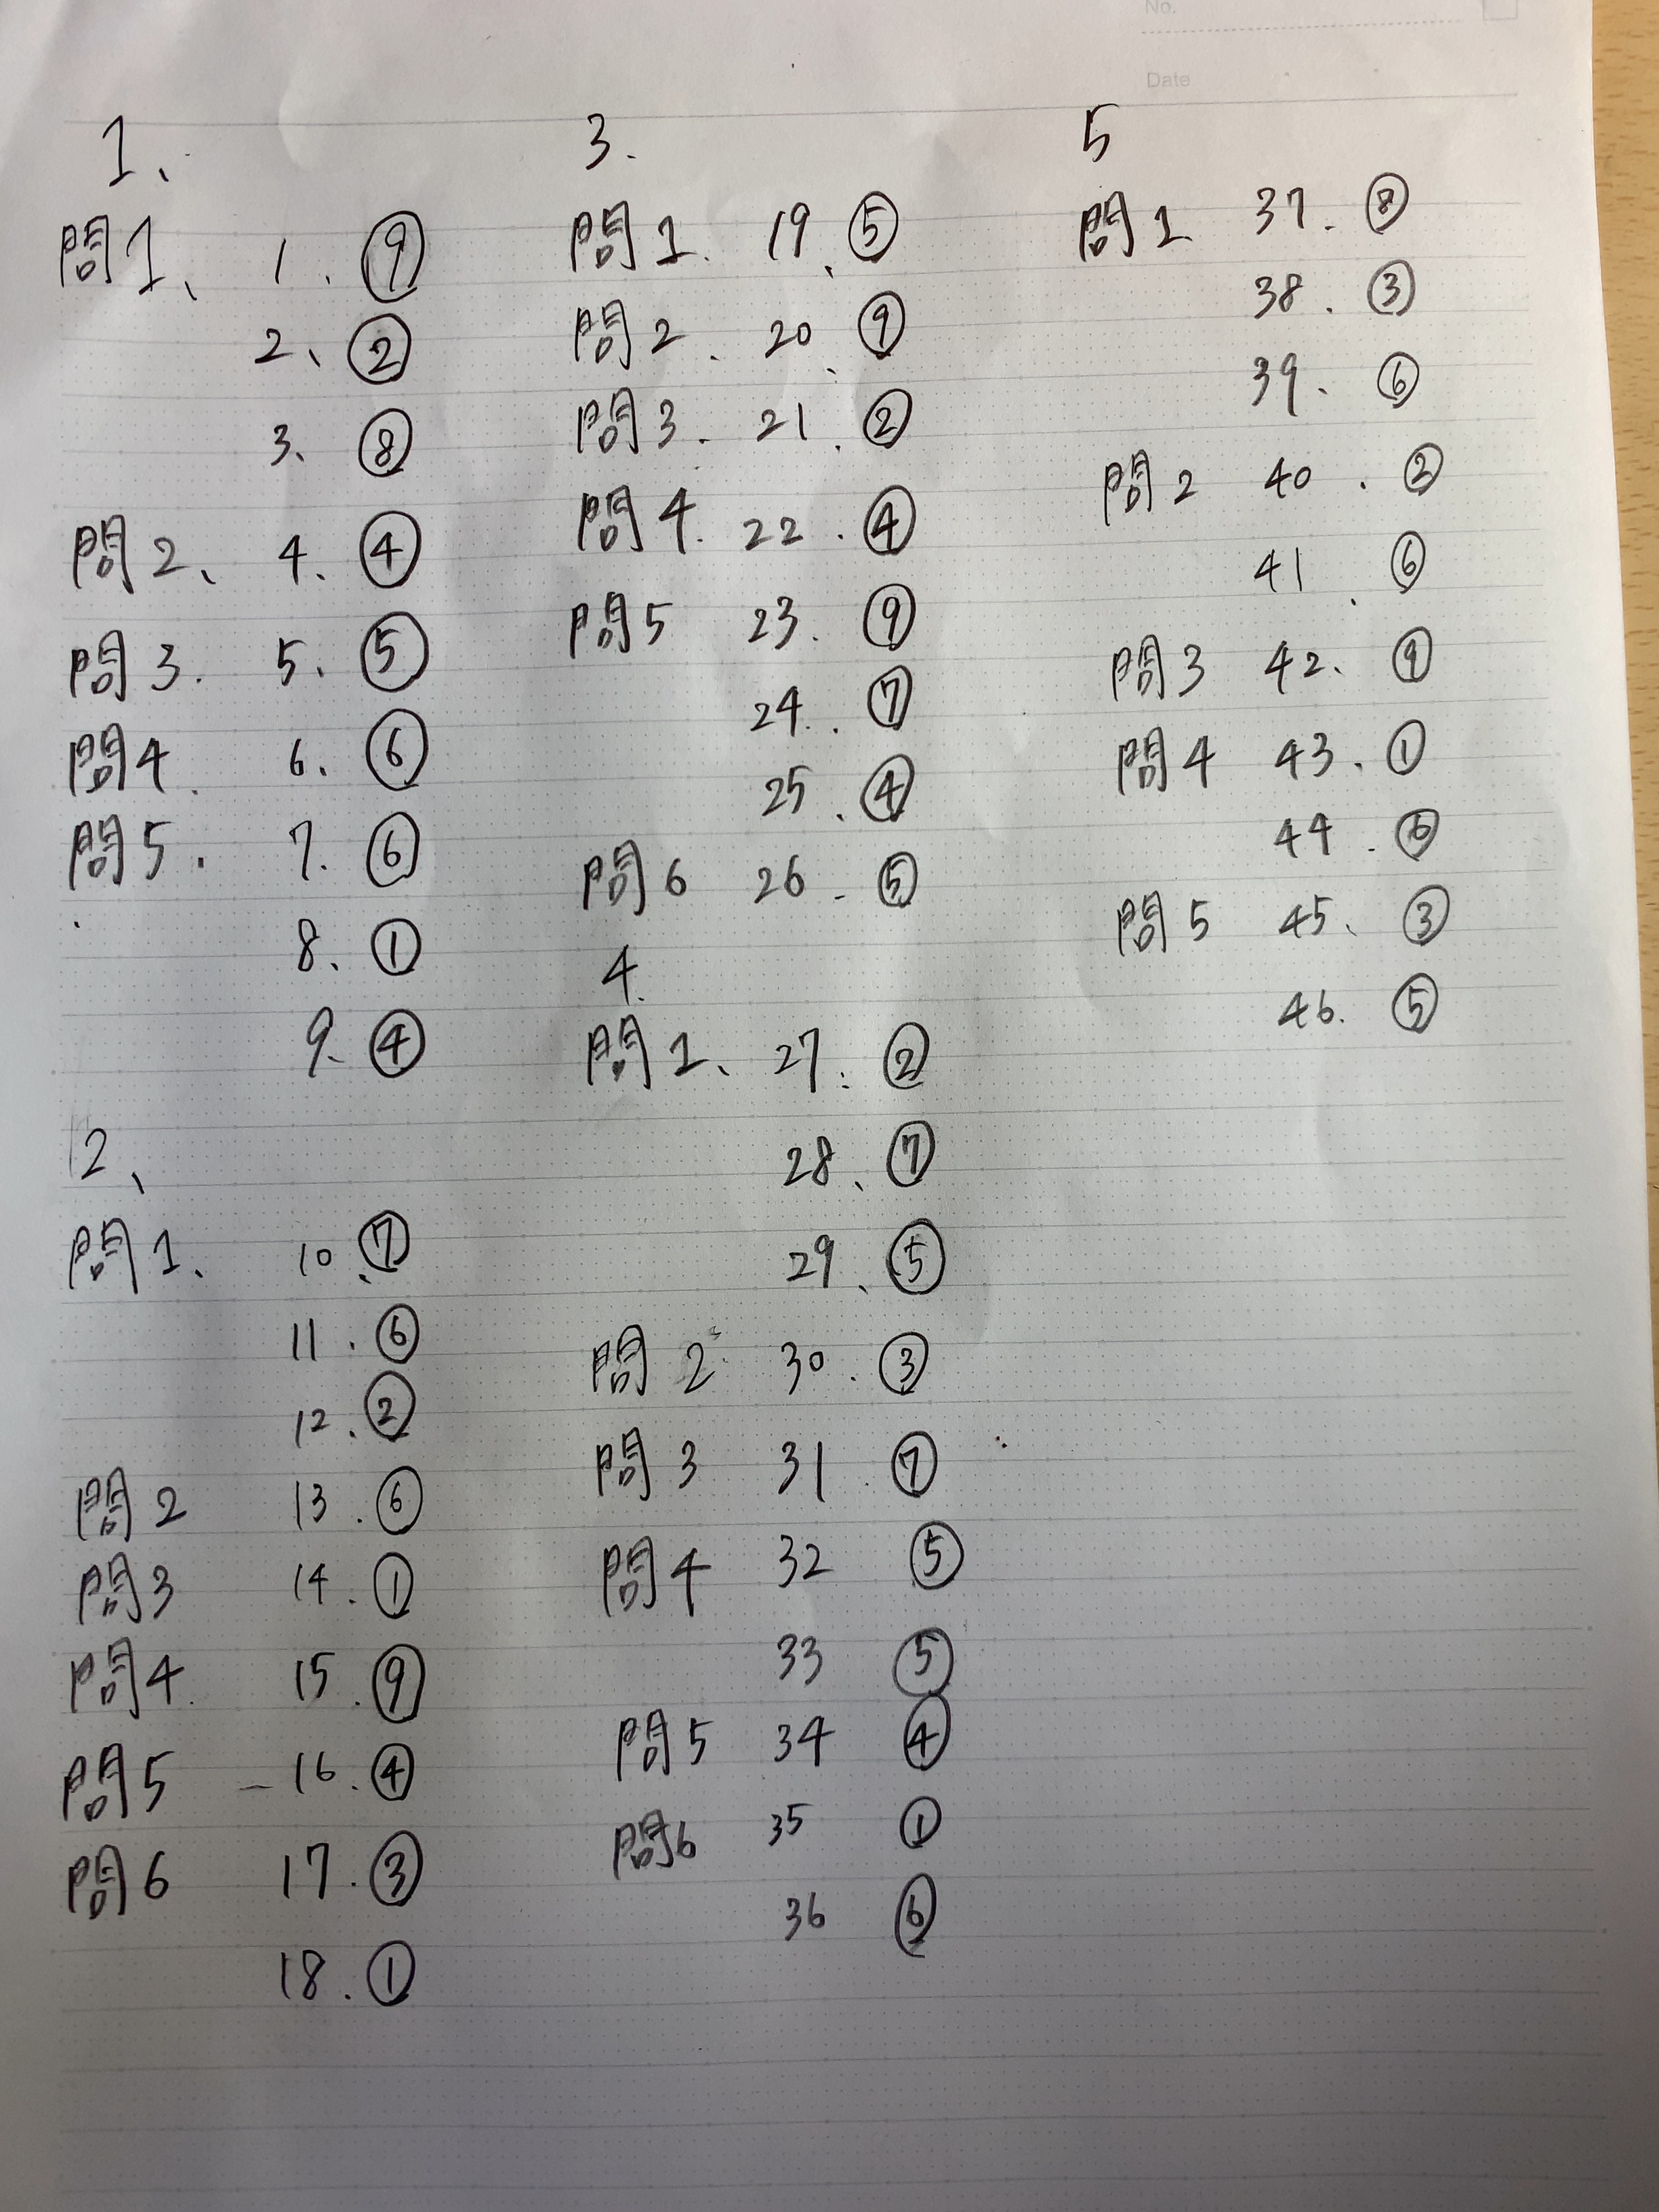 No.
Date
1、
問1、 1. ⑨
2、②
3、⑧
問2、 4、④
問3. 5、⑤
問4. 6、⑥
問5. 7. ⑥
8、①
9、④
2、
問1、 10、⑦
11. ⑥
12、②
問2 13. ⑥
問3 14. ①
問4. 15. ⑨
問5 16. ④
問6 17. ③
18. ①
3.
問1. 19、⑤
問2. 20、⑨
問3. 21. ②
問4. 22. ④
問5 23. ⑨
24. ⑦
25. ④
問6 26. ⑤
4.
問1、 27. ②
28、⑦
29、⑤
問2 30. ③
問3 31. ⑦
問4 32 ⑤
33 ⑤
問5 34 ④
問6 35 ①
36 ⑥
5
問1 37. ⑧
38. ③
39. ⑥
問2 40. ②
41. ⑥
問3 42、⑨
問4 43. ①
44. ⑥
問5 45、③
46. ⑤